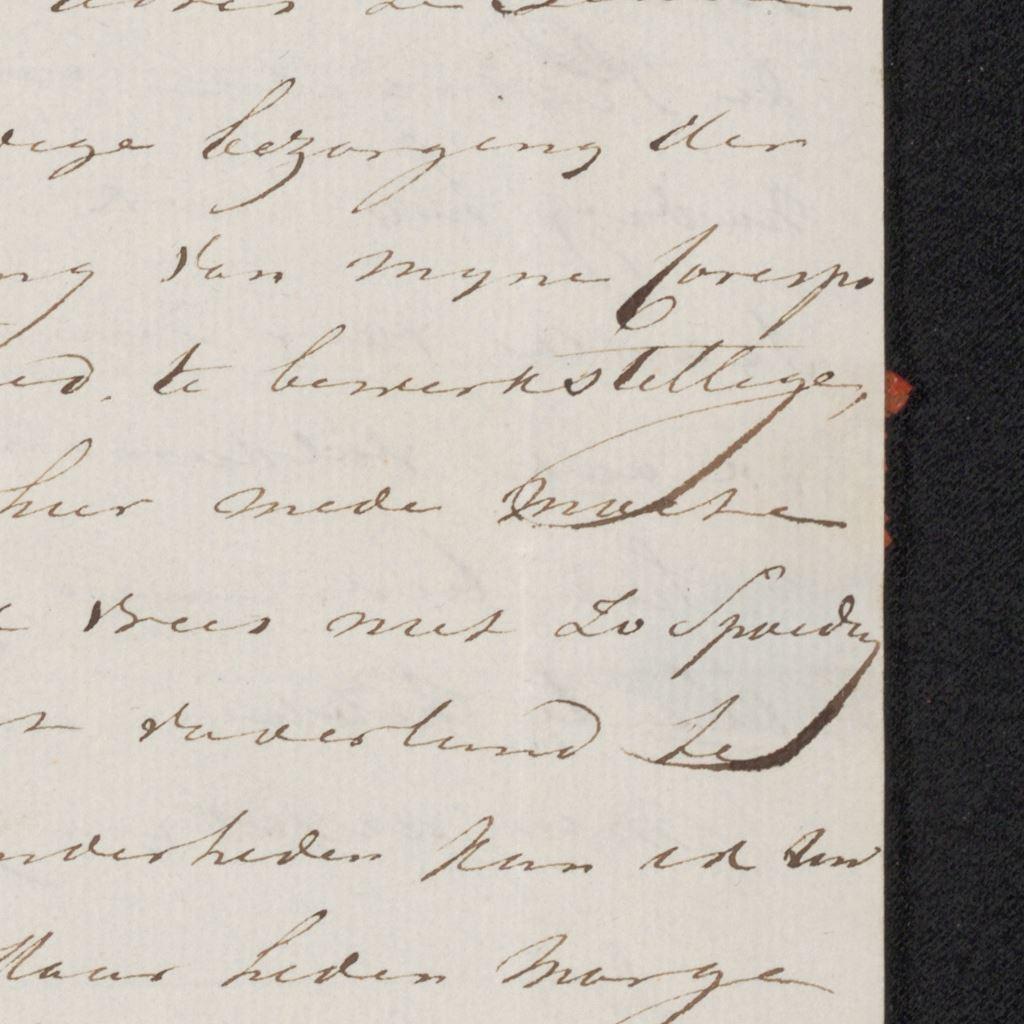 adres te
bezorging der
ng van myne Corespo
te bewerkstellige,
hier mede moete
vrees met zo Spoedig
vaderland te
nderheden kan ik uw
Maar heden Morge